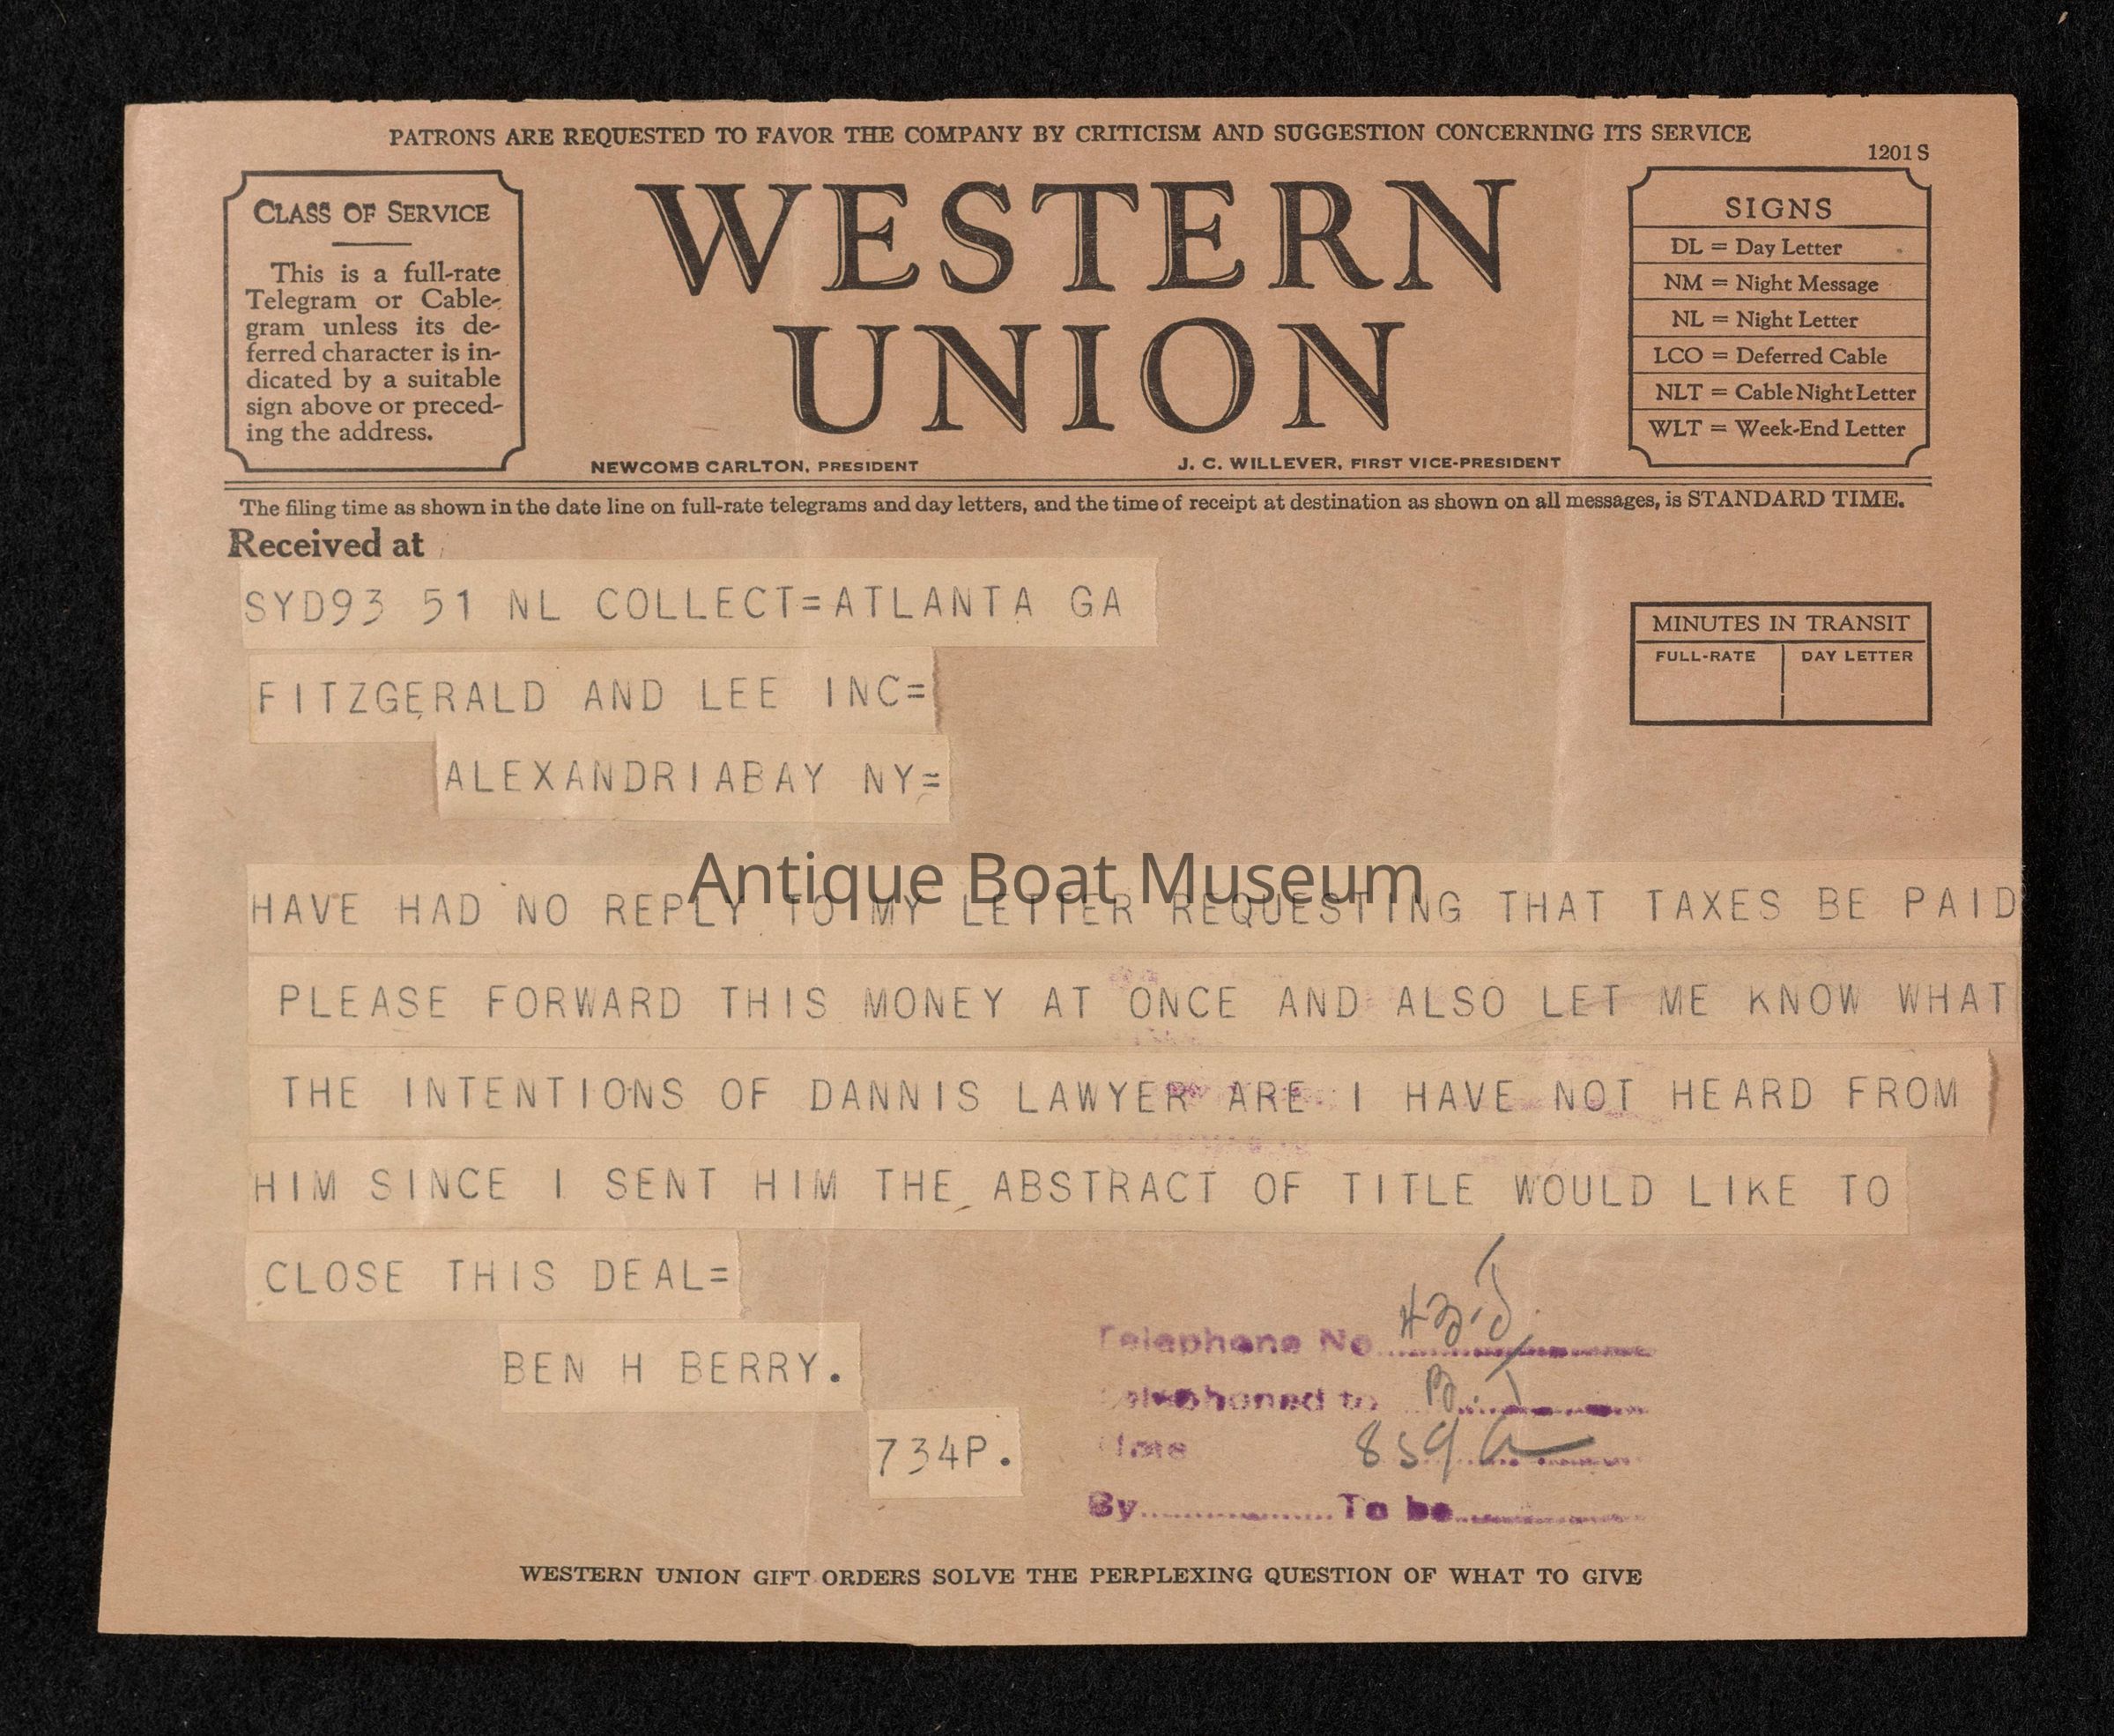 PATRONS ARE REQUESTED TO FAVOR THE COMPANY BY CRITICISM AND SUGGESTION CONCERNING ITS SERVICE
1201 S
CLASS OF SERVICE
This is a full-rate
Telegram or Cable-
gram unless its de-
ferred character is in-
dicated by a suitable
sign above or preced-
ing the address.
WESTERN
UNION
NEWCOMB CARLTON, PRESIDENT
J. C. WILLEVER, FIRST VICE-PRESIDENT
SIGNS
DL = Day Letter
NM = Night Message
NL = Night Letter
LCO = Deferred Cable
NLT = Cable Night Letter
WLT = Week-End Letter
The filing time as shown in the date line on full-rate telegrams and day letters, and the time of receipt at destination as shown on all messages, is STANDARD TIME.
Received at
SYD93 51 NL COLLECT=ATLANTA GA
MINUTES IN TRANSIT
FULL-RATE DAY LETTER
FITZGERALD AND LEE INC=
ALEXANDRIABAY NY=
Antique Boat Museum
HAVE HAD NO REPLY TO MY LETTER REQUESTING THAT TAXES BE PAID
PLEASE FORWARD THIS MONEY AT ONCE AND ALSO LET ME KNOW WHAT
THE INTENTIONS OF DANNIS LAWYER ARE I HAVE NOT HEARD FROM
HIM SINCE I SENT HIM THE ABSTRACT OF TITLE WOULD LIKE TO
CLOSE THIS DEAL=
BEN H BERRY.
734P.
Telephone No
Telephoned to
Time 859 a
By To be
WESTERN UNION GIFT ORDERS SOLVE THE PERPLEXING QUESTION OF WHAT TO GIVE